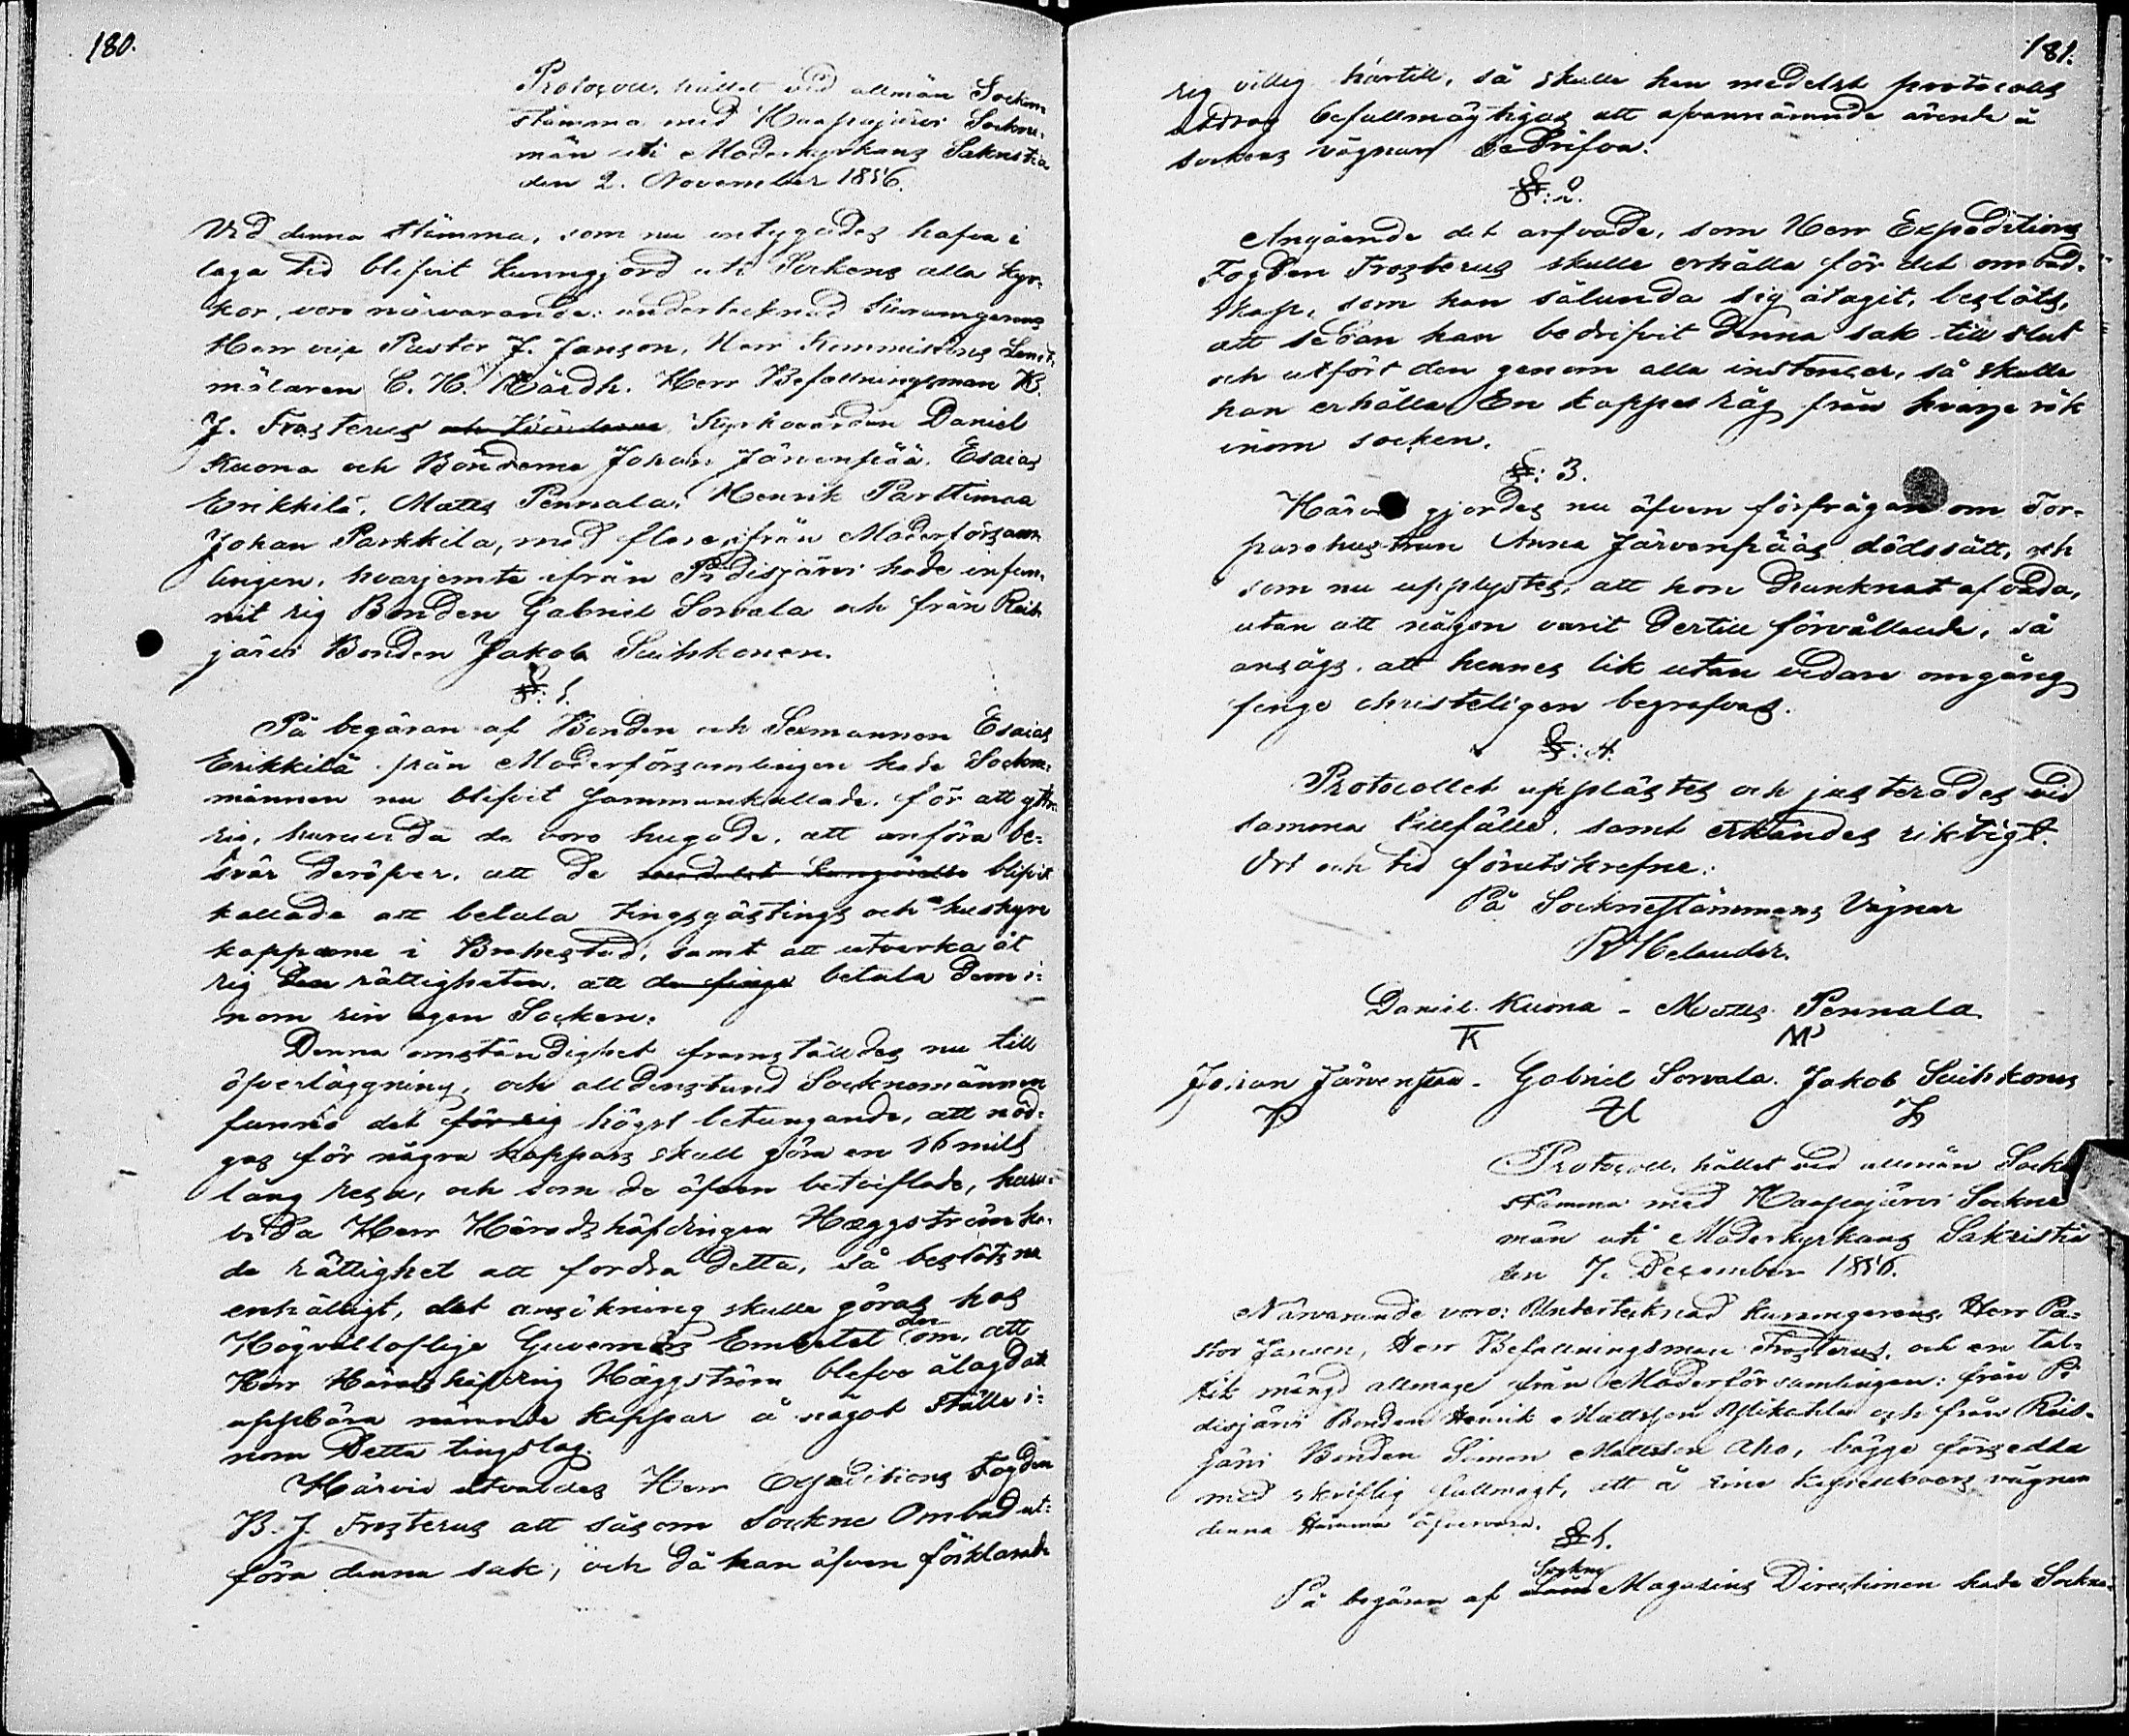 180.
Protocoll, hållet vid allmän Socken-
stämma med Haapajärvi Sockne-
män uti Moderkyrkans Sakristia
den 2. November 1856.
Vid denna stämma, som nu intygades hafva i
laga tid blifvit kunngjord uti Sockens alla kyr-
kor, voro närvarande: undertecknad
Herr vice Pastor J. Janson, Herr Kommissions Landt-
mätaren C. H. Mårdh. Herr Befallningsman B.
J. Frosterus och Bönderne Kyrkovärden Daniel
Kuona och Bönderne Johan Järvenpää, Esaias
Erikkilä, Matts Pennala, Henrik Parttimaa
Johan Parkkila, med flere ifrån Moderförsam-
lingen, hvarjemte ifrån Pidisjärvi hade infun-
nit sig Bonden Gabriel Sorvala och från Reis-
järvi Bonden Jakob Suihkonen.
§: 1.
På begäran af Bonden och Sexmannen Esaias
Erikkilä från Moderförsamlingen hade Sockne-
männen nu blifvit sammankallade, för att yttra
sig, huruvida de voro hugade, att anföra be-
svär deröfver, att de medelst kungörelse blifvit
kallade att betala tingsgästnings och hushyre
kapparne i Brahestad, samt att utverka åt
sig den rättigheten, att de finge betala dem i-
nom sin egen Socken.
Denna omständighet framställdes nu till
öfverläggning, och alldenstund Socknemännen
funno det för sig högst betungande, att nöd-
gas för några kappars skull göra en 16 mils
lång resa, och som de äfven betviflade, huru-
vida Herr Häradshöfdingen Hæggström ha-
de rättighet att fordra detta, så beslöts nu
enhälligt, det ansökning skulle göras hos
Högvälloflige Guvernörs Embetet der om, att
Herr Häradshöfding Hæggström blefve ålagd att
uppbära nämnde kappar å något ställe i-
nom detta tingslag.
Härvid utvaldes Herr Expeditions Fogden
B. J. Frosterus att såsom Sockne Ombud ut-
föra denna sak, och då han äfven förklarade
181.
sig villig härtill, så skulle han medelst protocolls
utdrag befullmägtigas att ofvannämnde ärende å
sockens vägnar bedrifva.
§: 2.
Angående det arfvode, som Herr Expeditions
Fogden Frosterus skulle erhålla för det ombud-
skap, som han sålunda sig åtagit, beslöts,
att sedan han bedrifvit denna sak till slut
och utfört den genom alla instanser, så skulle
han erhålla En kappe råg från hvarje rök
inom socken.
§: 3.
gjordes nu äfven förfrågan om Tor-
parehustrun Anna Järvenpääs dödssätt, och
som nu upplystes, att hon drunknat af våda,
utan att någon varit dertill förvållande, så
ansågs, att hennes lik utan vidare omgång
finge christeligen begrafvas.
§: 4.
Protocollet upplästes och justerades vid
samma tillfälle, samt erkändes riktigt.
Ort och tid förutskrefne.
På Socknestämmans Vägnar
R Helander.
Daniel Kuona - Matts Pennala.
K MP
Johan Järvenpää - Gabriel Sorvala. Jakob Suihkonen
Protocoll, hållet vid allmän Socken-
stämma med Haapajärvi Sockne
män uti Moderkyrkans Sakristia
den 7. December 1856.
Närvarande voro: Undertecknad Herr Pa-
stor Janson, Herr Befallningsman Frosterus, och en tal-
rik mängd allmoge från Moderförsamlingen: från Pi
disjärvi Bonden Henrik Mattsson Ylikahla och från Reis-
järvi Bonden Simon Mattsson Aho, bägge försedda
med skriftlig fullmagt, att å sine kapellboers vägnar
denna stämma öfvervara.
§ 1.
På begäran af Sockne Magasins Directionen hade Sockne-